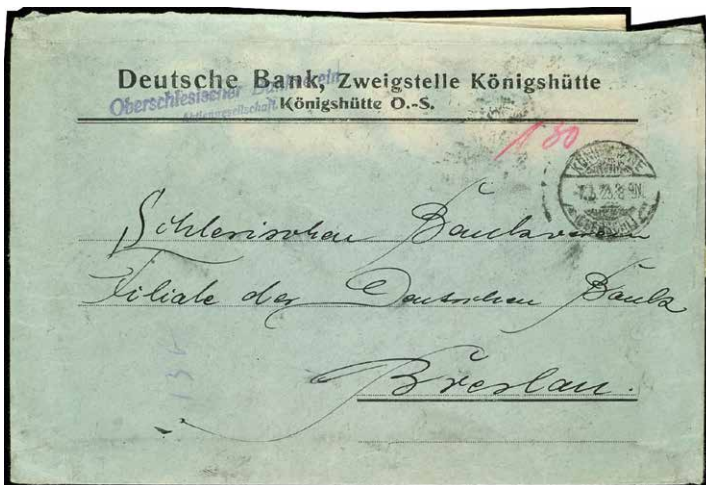 Deutsche Bank, Zweigstelle Königshütte
Oberschlesischer Bankverein
Aktiengesellschaft
Königshütte O.-S.
180
KÖNIGSHÜTTE
8-9N.
(OBERSCHL.)
Schlesischen Bankverein
Filiale der Deutschen Bank
Breslau.